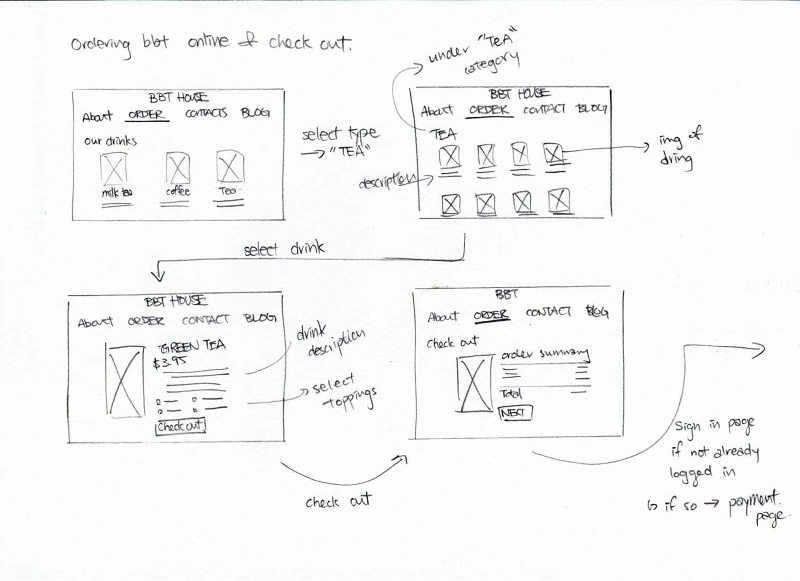 Ordering bbt online & check out.
BBT HOUSE
About ORDER CONTACTS BLOG
our drinks
milk tea coffee Tea
select type
→ "TEA"
under "TEA"
category
BBT HOUSE
About ORDER CONTACT BLOG
TEA
description
img of
dring
select drink
BBT HOUSE
About ORDER CONTACT BLOG
GREEN TEA
$3.95
Check out
drink
description
select
toppings
check out
BBT
About ORDER CONTACT Blog
Check out
order summary
Total
NEXT
Sign in page
if not already
logged in
↳ if so → payment
page.